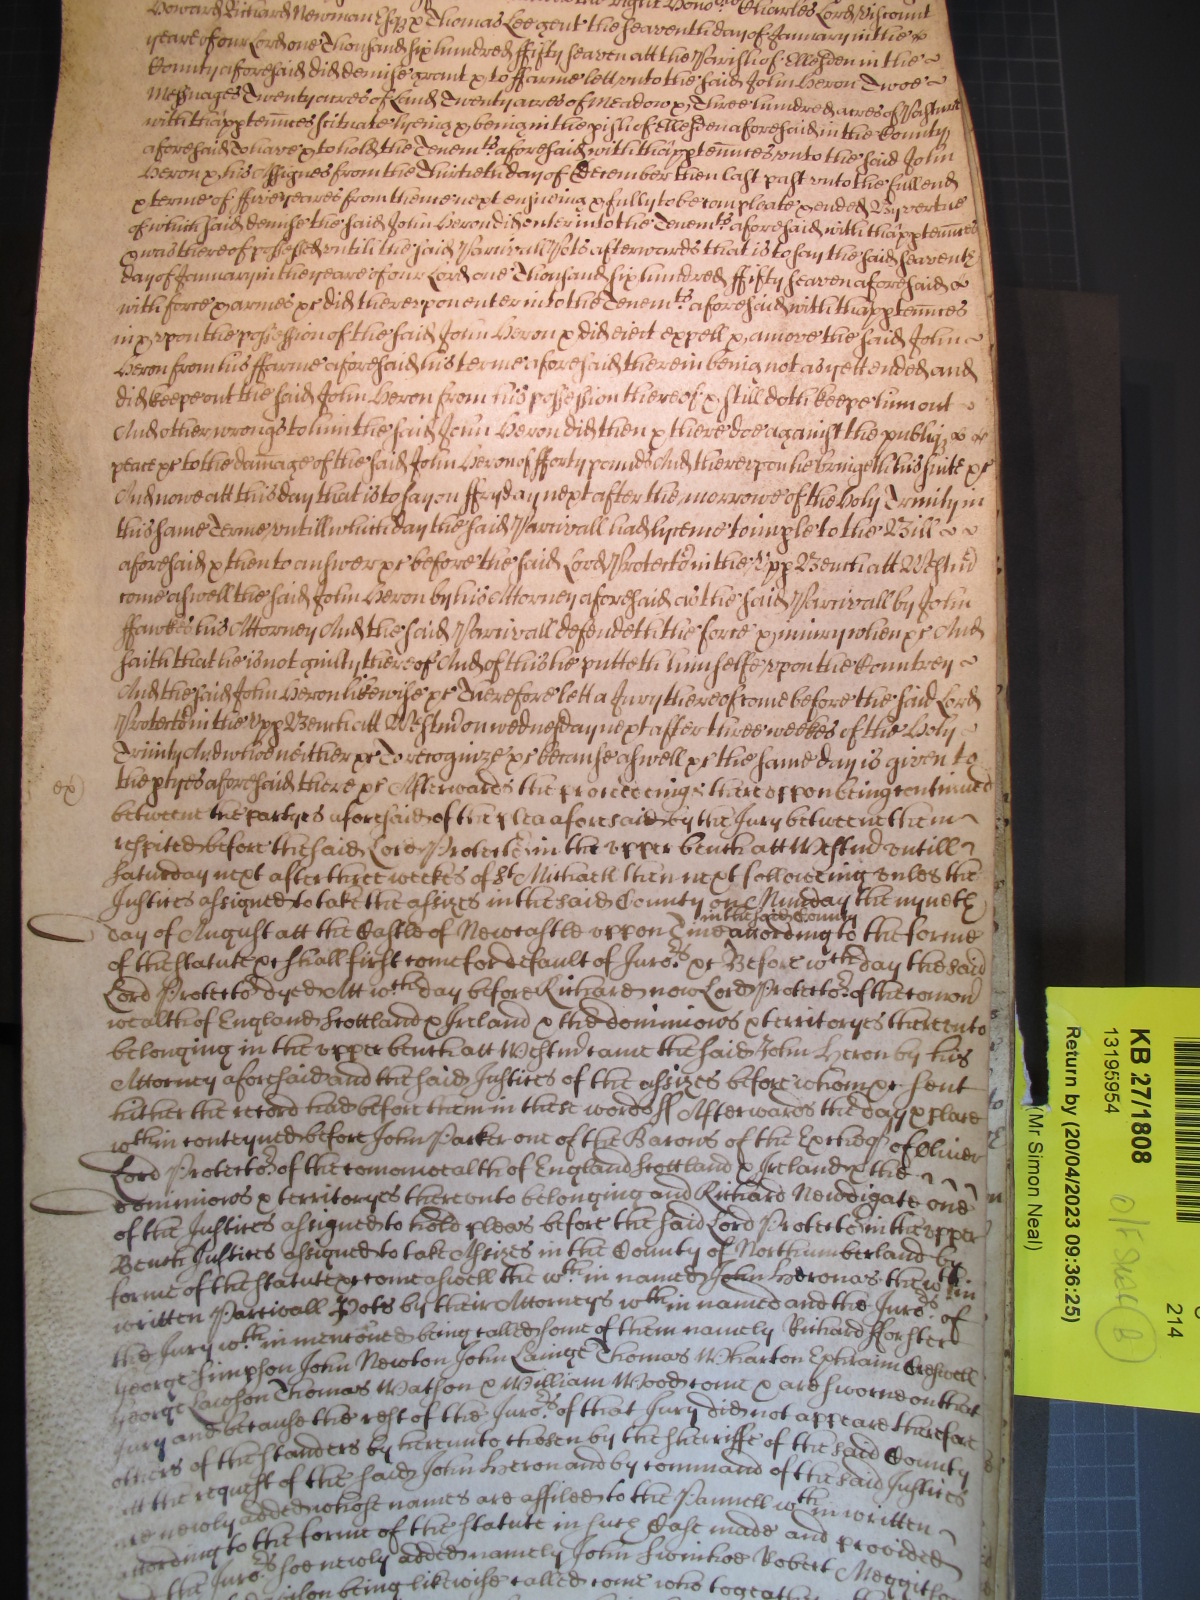 Howard Richard Newman Esq x Thomas Lee gent the seaventh day of January in the
yeare of our Lord one Thousand six hundred ffifty seaven att the Parish of Ellesden in the
County aforesaid did demise grant x to ffarme lett unto the said John Heron Twoe
Messuages Twenty acres of Land Twenty acres of Meadow x Three hundred acres of Pasture
with thapptennces scituate lyeing x being in the pish of Ellesden aforesaid in the County
aforesaid To have x to hold the Tenemts aforesaid with thapptennces unto the said John
Heron x his Assignes from the Thirtieth day of December then last past unto the full end
x terme of ffive yeares from thence next ensueing x fully to be compleate x ended By vertue
of which said demise the said John Heron did enter into the Tenemts aforesaid with thapptennces
x was thereof possessed untill the said Parcivall Pots afterwards that is to say the said seaventh
day of January in the yeare of our Lord one Thousand six hundred ffifty seaven aforesaid
with force x armes xc did thereuponenter into the Tenemts aforesaid with thapptennces
in x upon the possession of the said John Heron x did eiect expell x amove the said John
Heron from his ffarme aforesaid his terme aforesaid therein being not as yett ended and
did keepe out the said John Heron from his possession thereof x still doth keepe him out
And other wrongs to him the said John Heron did then x there doe against the publiq
peace xc to the damage of the said John Heron of fforty pounds And thereupon he bringeth his suite xc
And nowe att this day that is to say on ffryday next after the morrowe of the Holy Trinity in
this same Terme untill which day the said Parcivall had lycence to imple to the Bill
aforesaid x then to answer xc before the said Lord Protector in the Upp Bench att Westmr
come aswell the said John Heron by his Attorney aforesaid as the said Parcivall by John
ffawkes his Attorney And the said Parcivall defendeth the force x iniury when xc And
saith that he is not guilty thereof And of this he putteth himselfe upon the Countrey
And the said John Heron likewise xc Therefore lett a Jury thereof come before the said Lord
Protector in the Upp Bench att Westmr on wednesday next after three weekes of the Holy
Trinity And who neither xc To recognize xc because aswell xc the same day is given to
the ptyes aforesaid there xc Afterwards the proceedings thereuppon being continued
betweene the partyes aforesaid of the plea aforesaid by the Jury betweene them
respited before the said Lord Protector in the upper bench att Westmr untill
Saturday next after three weekes of St Michaell then next following unles the
Justices assigned to take the assizes in the said County on Munday the nyneth
in the said County
day of August att the Castle of Newcastle uppon Tine according to the forme
of the statute xc shall first come for default of Jurors xc Before wch day the said
Lord Protector dyed Att wch day before Richard now Lord Protector of the comon
wealth of England Scottland x Ireland x the dominions x territoryes thereunto
belonging in the upper bench att Westmr came the said John Heron by his
Attorney aforesaid and the said Justices of the assizes before whom xc sent
hither the record had before them in these words ss Afterwards the day x place
wthin conteyned before John Parker one of the Barons of the Excheqr of Oliver
Lord Protector of the comonwealth of England Scottland x Ireland x the
dominions x territoryes thereunto belonging and Richard Newdigate one
of the Justices assigned to hold pleas before the said Lord Protector in the upper
Bench Justices assigned to take Assizes in the County of Northumberland by
forme of the statute xc come aswell the wthin named John Heron as the wthin
written Parcivall Pots by their Attorneys wthin named and the Jurors of
the Jury wthin mentoned being called some of them namely Richard fforster
George Simpson John Newton John Lainge Thomas Wharton Ephraim Creswell
George Lawson Thomas Watson x William Wood come x are sworne on that
Jury and because the rest of the Jurors of that Jury did not appeare therefore
others of the standers by hereunto chosen by the Sherriffe of the said County
att the request of the said John Heron and by command of the said Justices
are newly added whose names are affiled to the Pannell wthin written
according to the forme of the statute in such Case made and provided
the Jurors soe newly added namely John Swinhoe Robert
being likewise called come who
KB 27/1808
13195954
Return by (20/04/2023 09:36:25)
(Mr Simon Neal)
214